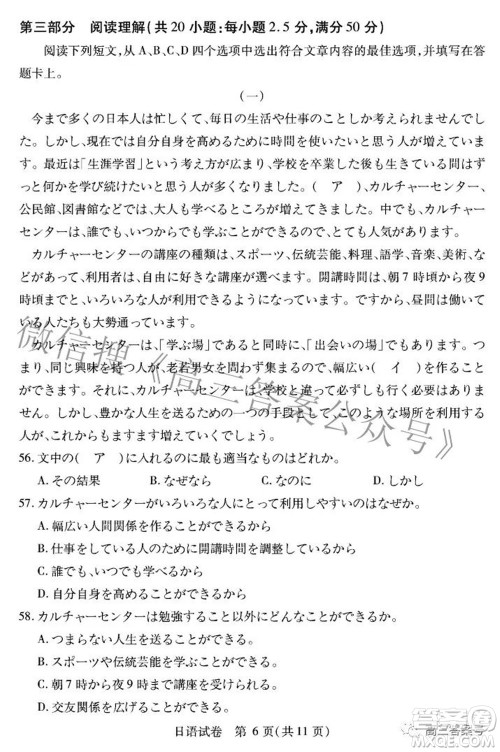 第三部分　阅读理解(共20小题:每小题2.5分,满分50分)
阅读下列短文,从A、B、C、D四个选项中选出符合文章内容的最佳选项,并填写在答
题卡上。
(一)
今まで多くの日本人は忙しくて、毎日の生活や仕事以外のことが考えられませんでし
た。しかし、現在では自分自身を高めるために時間を使いたいと思う人が増えています。
ます。最近は「生涯学習」という考え方が広まり、学校を卒業した後も生きている間はず
っと何かを学び続けたいと思う人が多くなりました。(　ア　)、カルチャーセンター、
公民館、図書館などでは、大人も学べるところが増えてきました。中でも、カルチャー
センターは、誰でも、いつからでも学べるところとして、とても人気があります。
カルチャーセンターの講座の種類は、スポーツ、伝統芸能、料理、語学、音楽、美術、な
どがあって、利用者は、自由に好きな講座が選べます。開講時間は、朝7時頃から夜9
時頃までと、いろいろな人が利用できるようになっています。ですから、昼間は働いて
いる人たちも大勢通っています。
カルチャーセンターは、「学ぶ場」であると同時に、「出会いの場」でもあります。つま
り、同じ興味を持った人が、老若男女を問わず集まってくるので、幅広い(　イ　)がで
きます。それだけに、カルチャーセンターは、学校と違って必ずしも行く必要はありま
せん。しかし、豊かな人生を送るための一つの手段として、このような場所を利用する
人が、ますます増えていくでしょう。
56. 文中の(　ア　)に入れるのに最も適当なものはどれか。
A. その結果　B. なぜなら　C. それとも　D. しかし
57. カルチャーセンターがいろいろな人にとって利用しやすいのはなぜか。
A. 幅広い人間関係を作ることができるから
B. 仕事をしている人のために開講時間を調整しているから
C. 誰でもいつからでも学べるから
D. 自分を高めることができるから
58. カルチャーセンターは勉強すること以外にどんなことができるか。
A. つまらない人生を送ることができる。
B. スポーツや伝統芸能を学ぶことができる。
C. 朝7時から夜9時まで講座を受けられる。
D. 交友関係を広げることができる。
日语试卷　第6页(共11页)
微信搜《高三答案公众号》
高三答案号